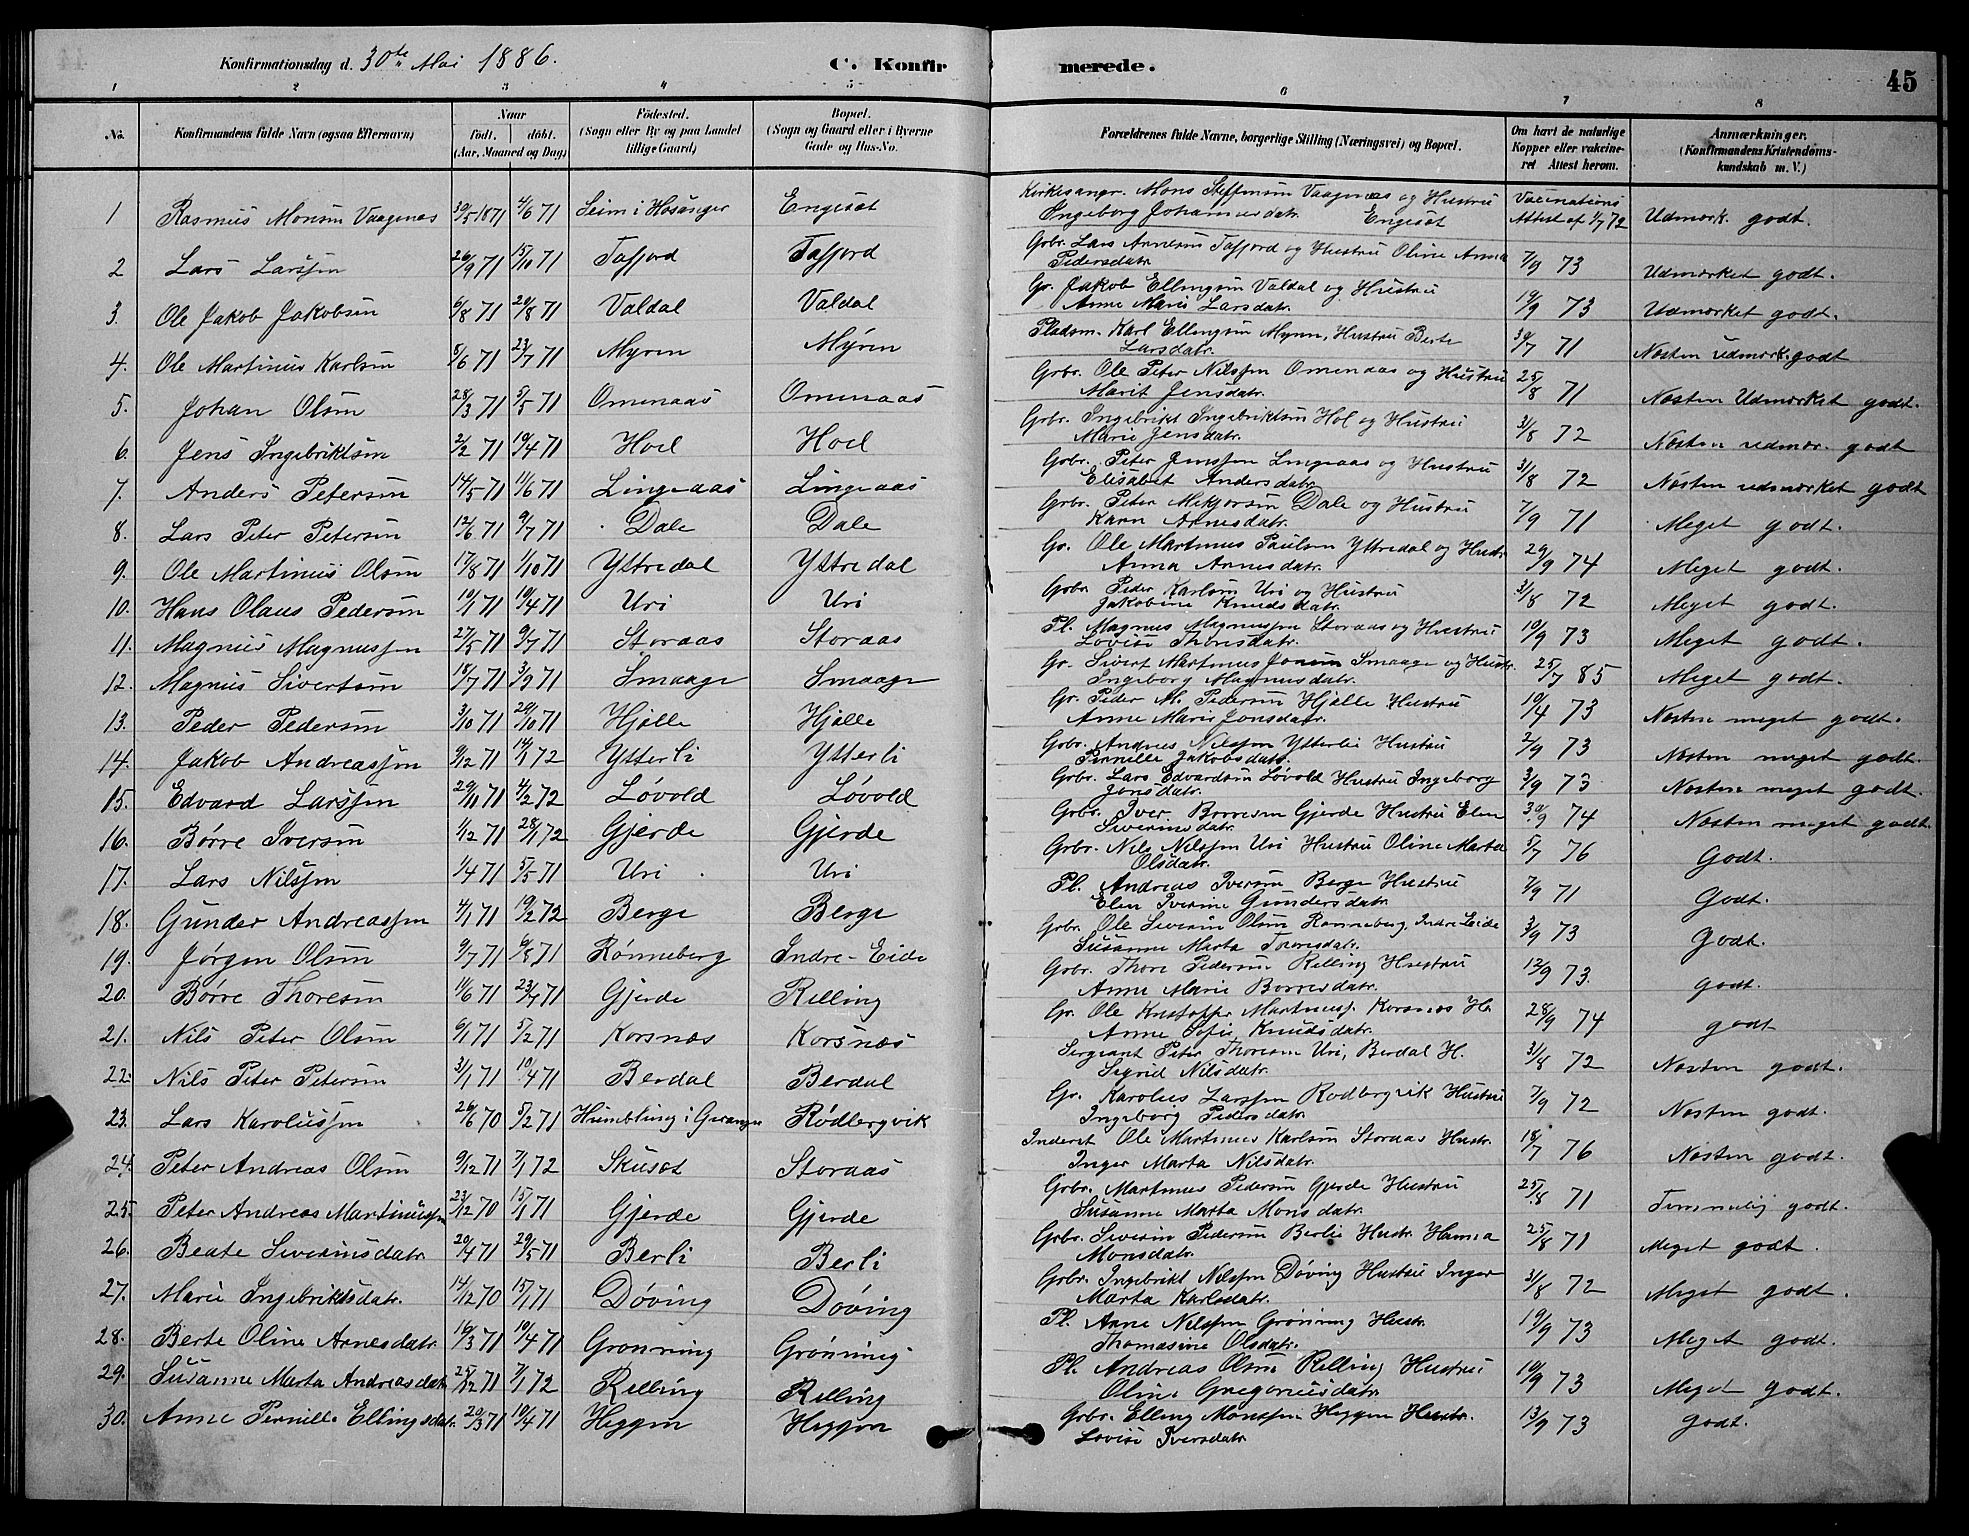 Konfirmationsdag d. 30te Mai 1886. C. Konfirmerede. 45
1 2 3 4 5 6 7 8
No. Konfirmandens fulde Navn (ogsaa Efternavn) Naar født. døbt. (Aar, Maaned og Dag) Fødested. (Sogn eller By og paa Landet tillige Gaard) Bopæl. (Sogn og Gaard eller i Byerne Gade og Hus-No. Forældrenes fulde Navne, borgerlige Stilling (Næringsvei) og Bopæl. Om havt de naturlige Kopper eller vakcineret Attest herom. Anmærkninger. (Konfirmandens Kristendomskundskab m. V.)
1 Rasmus Monsen Vaagenæs 30/5 1871 4/6 71 Seim i Hosanger Engeset Kirkesangr. Mons Steffensen Vaagenæs og Hustru Vacinations
Ingeborg Johannesdatr. Engeset Attest af 1/7 72 Udmærk. godt.
2 Lars Larssen 26/9 71 15/10 71 Tafjord Tafjord Gbr. Lars Arnesen Tafjord og Hustru Oline Anna
Pedersdatr. 7/9 73 Udmærket godt.
3. Ole Jakob Jakobsen 6/8 71 20/8 71 Valdal Valdal Gr. Jakob Ellingsen Valdal og Hustru
Anne Marie Larsdatr. 19/9 73 Udmærket godt.
4. Ole Martinus Karlsen 5/6 71 23/7 71 Myren Myren Pladsm. Karl Ellingsen Myren, Hustru Berte
Larsdatr. 30/7 71 Næsten udmærk. godt
5. Johan Olsen 28/3 71 5/5 71 Omenaas Omenaas Grbr. Ole Peter Nilssen Omenaas og Hustru
Marit Jensdatr. 25/8 71 Næsten Udmærket godt.
6. Jens Ingebriktsen 2/2 71 10/4 71 Hoel Hoel Grbr. Ingebrikt Ingebriktsen Hol og Hustru
Marie Jensdatr. 31/8 72 Næsten udmær. godt
7. Anders Petersen 14/5 71 11/6 71 Lingeaas Lingeaas Grbr. Peter Jenssen Lingeaas og Hustru
Elisabet Andersdatr. 31/8 72 Næsten udmærket godt
8. Lars Peter Petersen 12/6 71 9/7 71 Dale Dale Grbr. Peter Dale og Hustru
Karn Arnesdatr. 7/9 71 Meget godt.
9. Ole Martinus Olsen 17/8 71 1/10 71 Yttredal Yttredal Gr. Ole Martinus Paulsen Yttredal og Hustr.
Anna Arnesdatr. 29/9 74 Meget godt.
10. Hans Olaus Pedersen 10/1 71 10/4 71 Uri Uri Grbr. Peder Karlsen Uri og Hustru
Jakobine Knudsdatr. 31/8 72 Meget godt.
11. Magnus Magnussen 27/5 71 9/7 71 Storaas Storaas Pl. Magnus Magnussen Storaas og Hustru
Lovise Thoresdatr. 10/9 73 Meget godt.
12. Magnus Sivertsen 18/7 71 3/9 71 Smaage Smaage Gr. Sivert Martinus Smaage og Hustr.
Ingeborg Magnusdatr. 25/7 85 Meget godt.
13. Peder Pedersen 3/10 71 29/10 71 Hjelle Hjelle Gr. Peder M. Pedersen Hjelle Hustru
Anne Marie Jonsdatr. 19/4 73 Næsten meget godt.
14. Jakob Andreassen 9/12 71 14/1 72 Ytterli Ytterli Grbr. Andreas Nilssen Ytterlie Hustru
Pernille Jakobsdatr. 2/9 73 Næsten meget godt.
15. Edvard Larssen 29/11 71 4/2 72 Løvold Løvold Grbr. Lars Edvardsen Løvold Hustru Ingeborg
Jonsdatr. 3/9 73 Næsten meget godt.
16. Børre Iversen 1/12 71 28/1 72 Gjerde Gjerde Grbr. Iver Børresen Gjerde Hustru Elen
Severinsdatr. 30/9 74 Næsten meget godt.
17. Lars Nilssen 1/4 71 5/5 71 Uri Uri Grbr. Nils Nilssen Uri Hustru Oline Marta
Olsdatr. 5/7 76 Godt.
18. Gunder Andreassen 4/1 71 19/2 72 Berge Berge Pl. Andreas Iversen Berge Hustru
Elen Iverine Gundersdatr. 7/9 71 Godt.
19. Jørgen Olsen 9/7 71 6/8 71 Rønneberg Indre-Eide Grbr. Ole Severin Olsen Rønneberg, Indre Eide
Susanne Marta Thoresdatr. 3/9 73 Godt.
20. Børre Thoresen 11/6 71 23/7 71 Gjerde Relling Grbr. Thore Pedersen Relling Hustru
Anne Marie Børresdatr. 12/9 73. godt.
21. Nils Peter Olsen 6/1 71 5/2 71 Korsnæs Korsnæs Gr. Ole Kristoffer Martinuss. Korsnæs H.
Anne Sofie Knudsdatr. 28/9 74 godt
22. Nils Peter Petersen 3/1 71 10/4 71 Berdal Berdal Sergeant Peter Thoresen Uri, Berdal H.
Sigrid Nilsdatr. 31/8 72 Næsten godt.
23. Lars Karolussen 26/6 70 5/2 71 Humblung i Geranger Rødbergvik Gr. Karolus Larssen Rødbergvik Hustru
Ingeborg Pedersdatr. 7/9 72 Næsten godt.
24. Peter Andreas Olsen 9/12 71 7/1 72 Skuset Storaas Inderst Ole Martinus Karlsen Storaas Hustr.
Inger Marta Nilsdatr. 18/7 76 Næsten godt.
25. Peter Andreas Martinussen 23/12 70 15/1 71 Gjerde Gjerde Grbr. Martinus Pedersen Gjerde Hustru
Susanne Marta Monsdatr. 25/8 71 Temmelig godt.
26. Beate Severinsdatr. 20/4 71 29/5 71 Berli Berli Grbr. Severin Pedersen Berlie Hustr. Hanna
Monsdatr. 25/8 71 Meget godt.
27. Marie Ingebriktsdatr. 14/12 70 15/1 71 Døving Døving Grbr. Ingebrikt Nilssen Døving Hustru Inger
Marta Karlsdatr. 31/8 72 Meget godt.
28. Berte Oline Arnesdatr. 16/3 71 10/4 71 Grønning Grønning Pl. Arne Nilssen Grønning Hustr.
Thomasine Olsdatr. 19/9 73 Meget godt.
29. Susanne Marta Andreasdatr. 25/12 71 7/1 72 Relling Relling Pl. Andreas Olsen Relling Hustru
Oline Gregoriusdatr. 10/9 73 Meget godt.
30. Anne Pernille Ellingsdatr. 20/3 71 10/4 71 Heggen Heggen Grbr. Elling Monssen Heggen Hustr.
Lovise Iversdatr. 13/9 73 Godt.